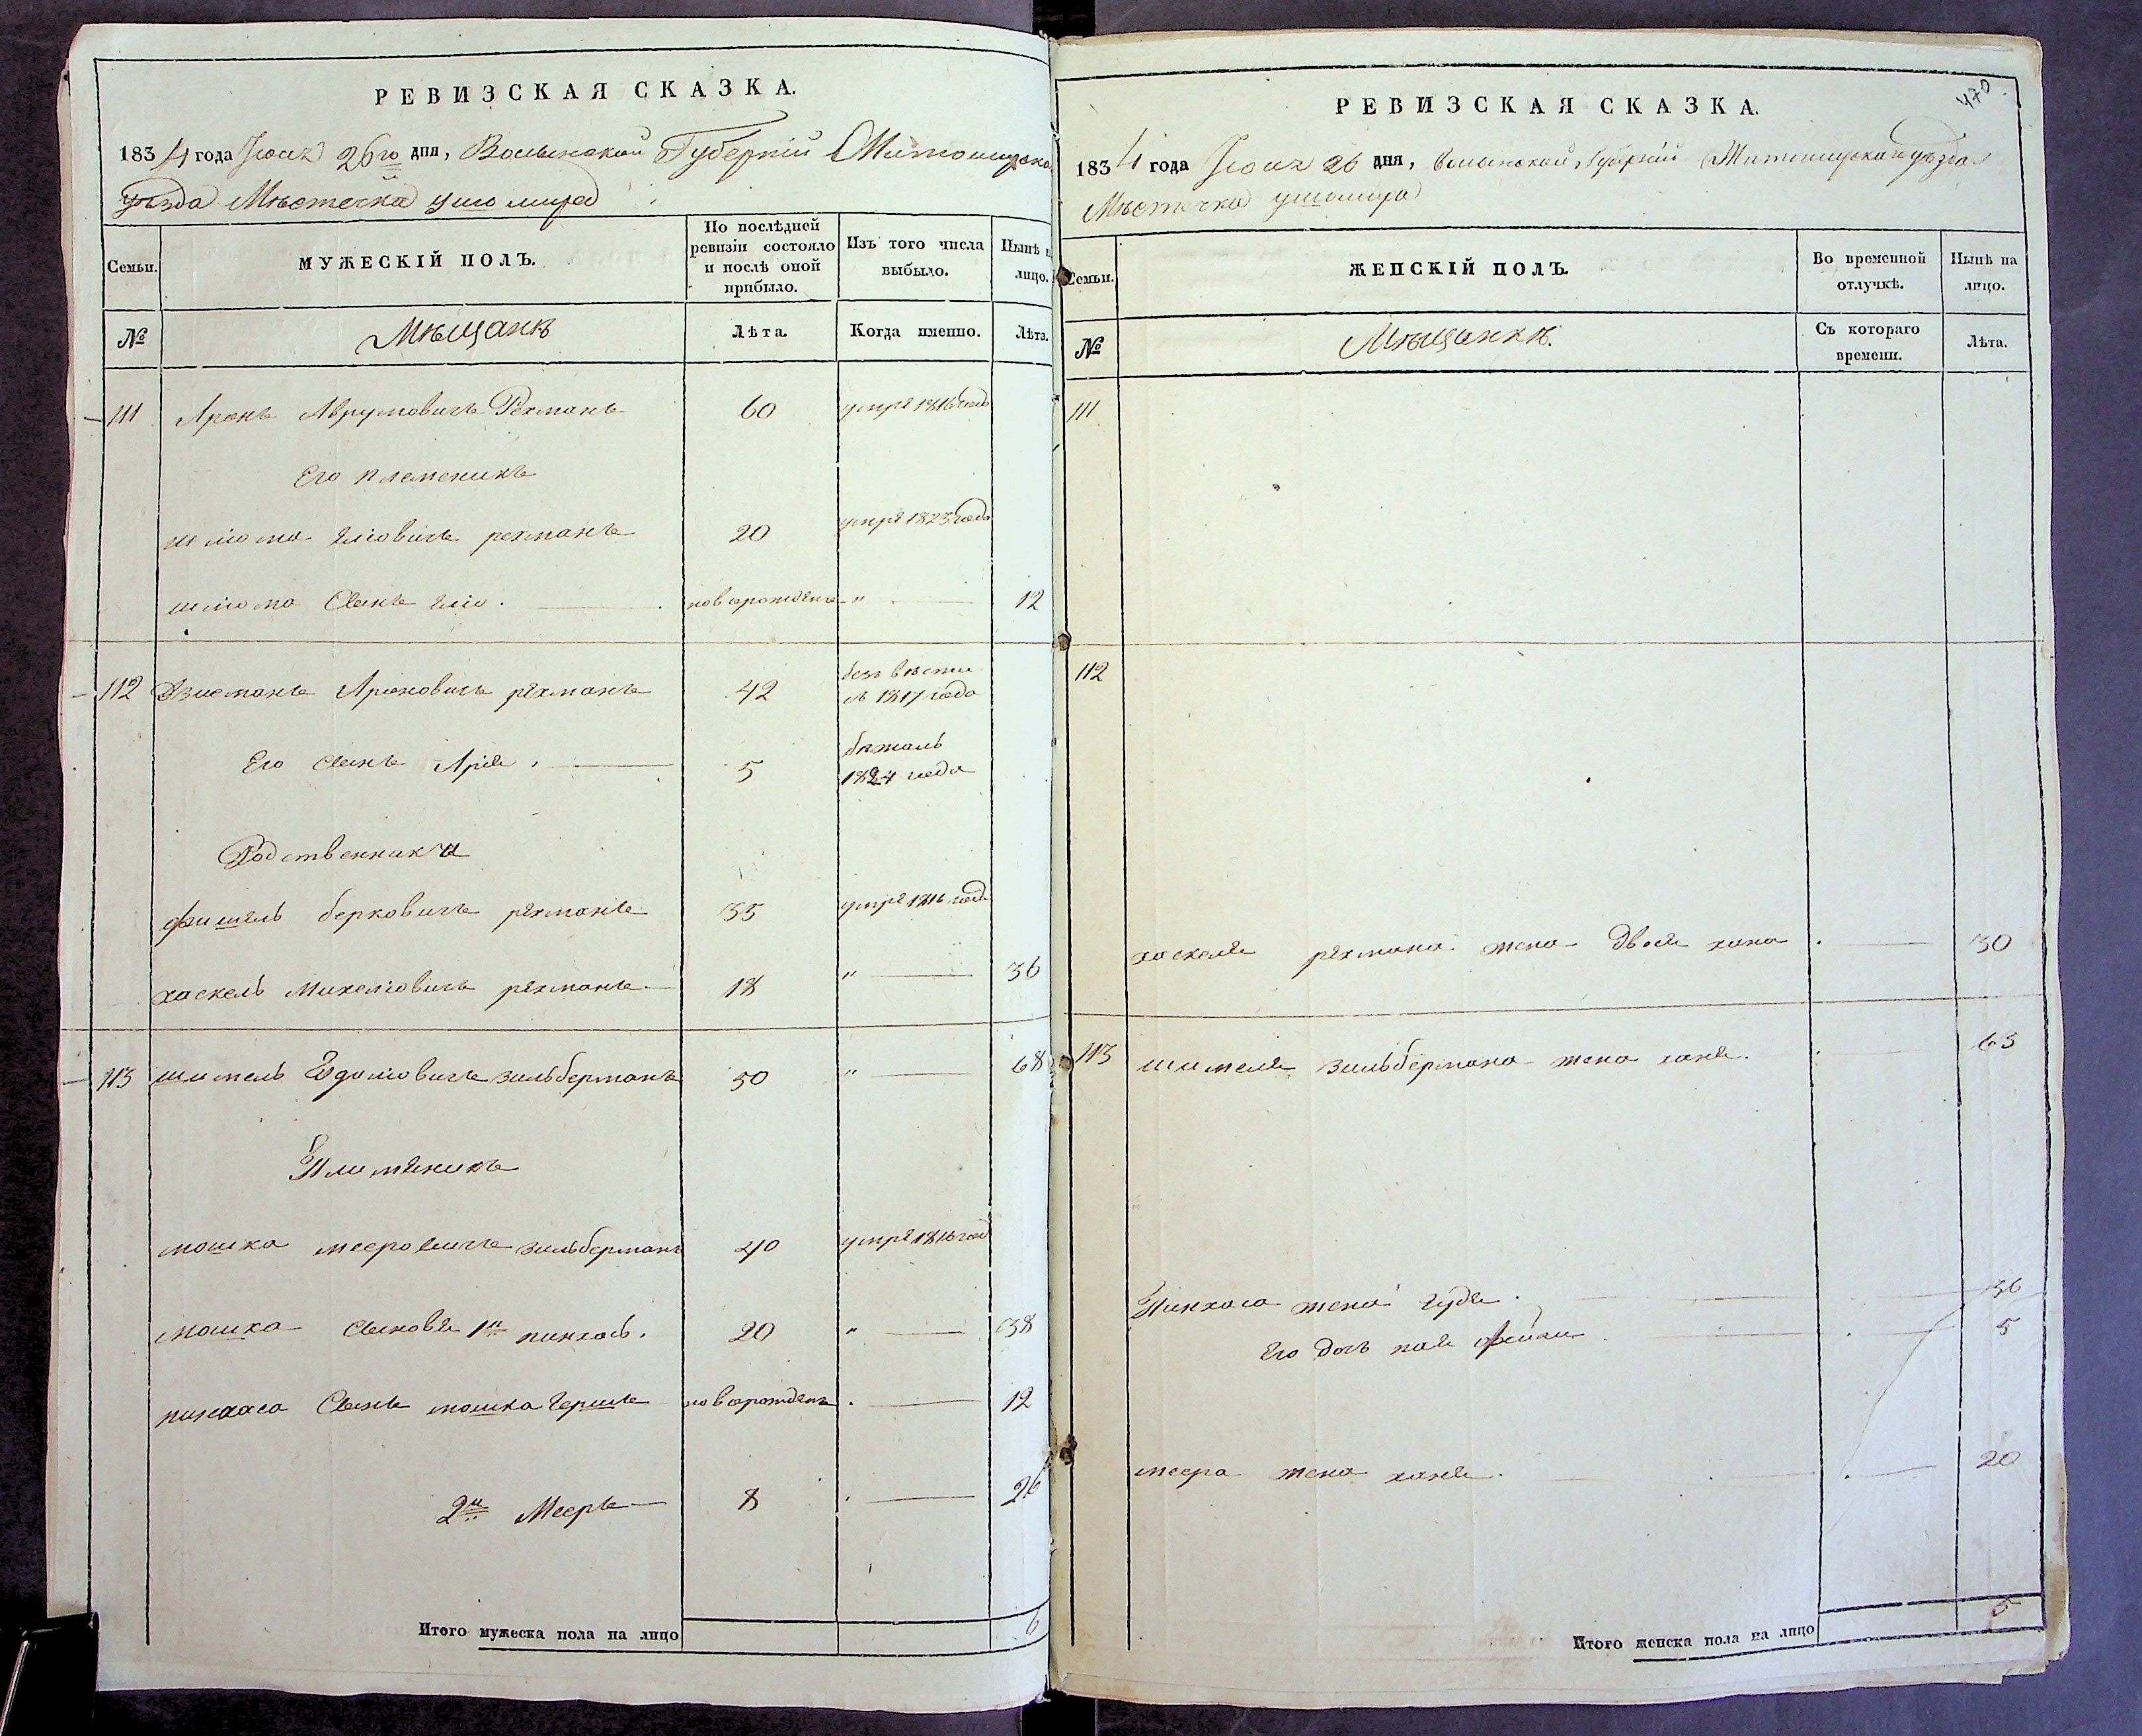 РЕВИЗСКАЯ СКАЗКА.
1834 года 26го дня, Волынской Губерніи Житомирска
уѣзда Мѣстечка Ушомира
Семьи.
МУЖЕСКІЙ ПОЛЪ.
По послѣдней ревизіи состояло и послѣ оной прибыло.
Изъ того числа выбыло.
Нынѣ н лицо.
№
Мѣщанѣ
Лѣта.
Когда именно.
Лѣта.
111 Аронъ Аврумовичъ Рехманъ 60 умрѣ 1816 года
Его племеникъ
шліома Еліовичъ рехманъ 20 умрѣ 1823 года
шліома Сынъ Еліо. новорожденъ " 12
112 Зисманъ Ароновичъ рехманъ 42 безъ вѣсти съ 1817 года
Его Сынъ Аріе. 5 бѣжалъ 1824 года
Родственники
фишель берковичъ рехманъ 35 умрѣ 1816 года
хаскель Михеліовичъ рехманъ 18 " 36
113 шимель зильберманъ 50 " 68
Племяникъ
мошка мееровичъ зильберманъ 40 умрѣ 1816 год
мошка Сыновья 1й пинхасъ. 20 " 38
пинхаса Сынъ мошка гершъ новорожденъ 12
2й Мееръ 8 26
Итого мужеска пола на лицо 6
470
РЕВИЗСКАЯ СКАЗКА.
1834 года 26 дня, Волынской Губерніи Житомирскаго уѣзда
Мѣстечка ушомира
Семьи.
ЖЕНСКІЙ ПОЛЪ.
Во временной отлучкѣ.
Нынѣ на лицо.
№
Мѣщанкѣ.
Съ котораго времени.
Лѣта.
111
112
хаскеля рехмана жена Двося хана 30
113 шимеля зильбермана жена ханя. 63
Пинхаса жена гудя. 36
Его дочь 5
меера жена ханя. 20
Итого женска пола на лицо 5